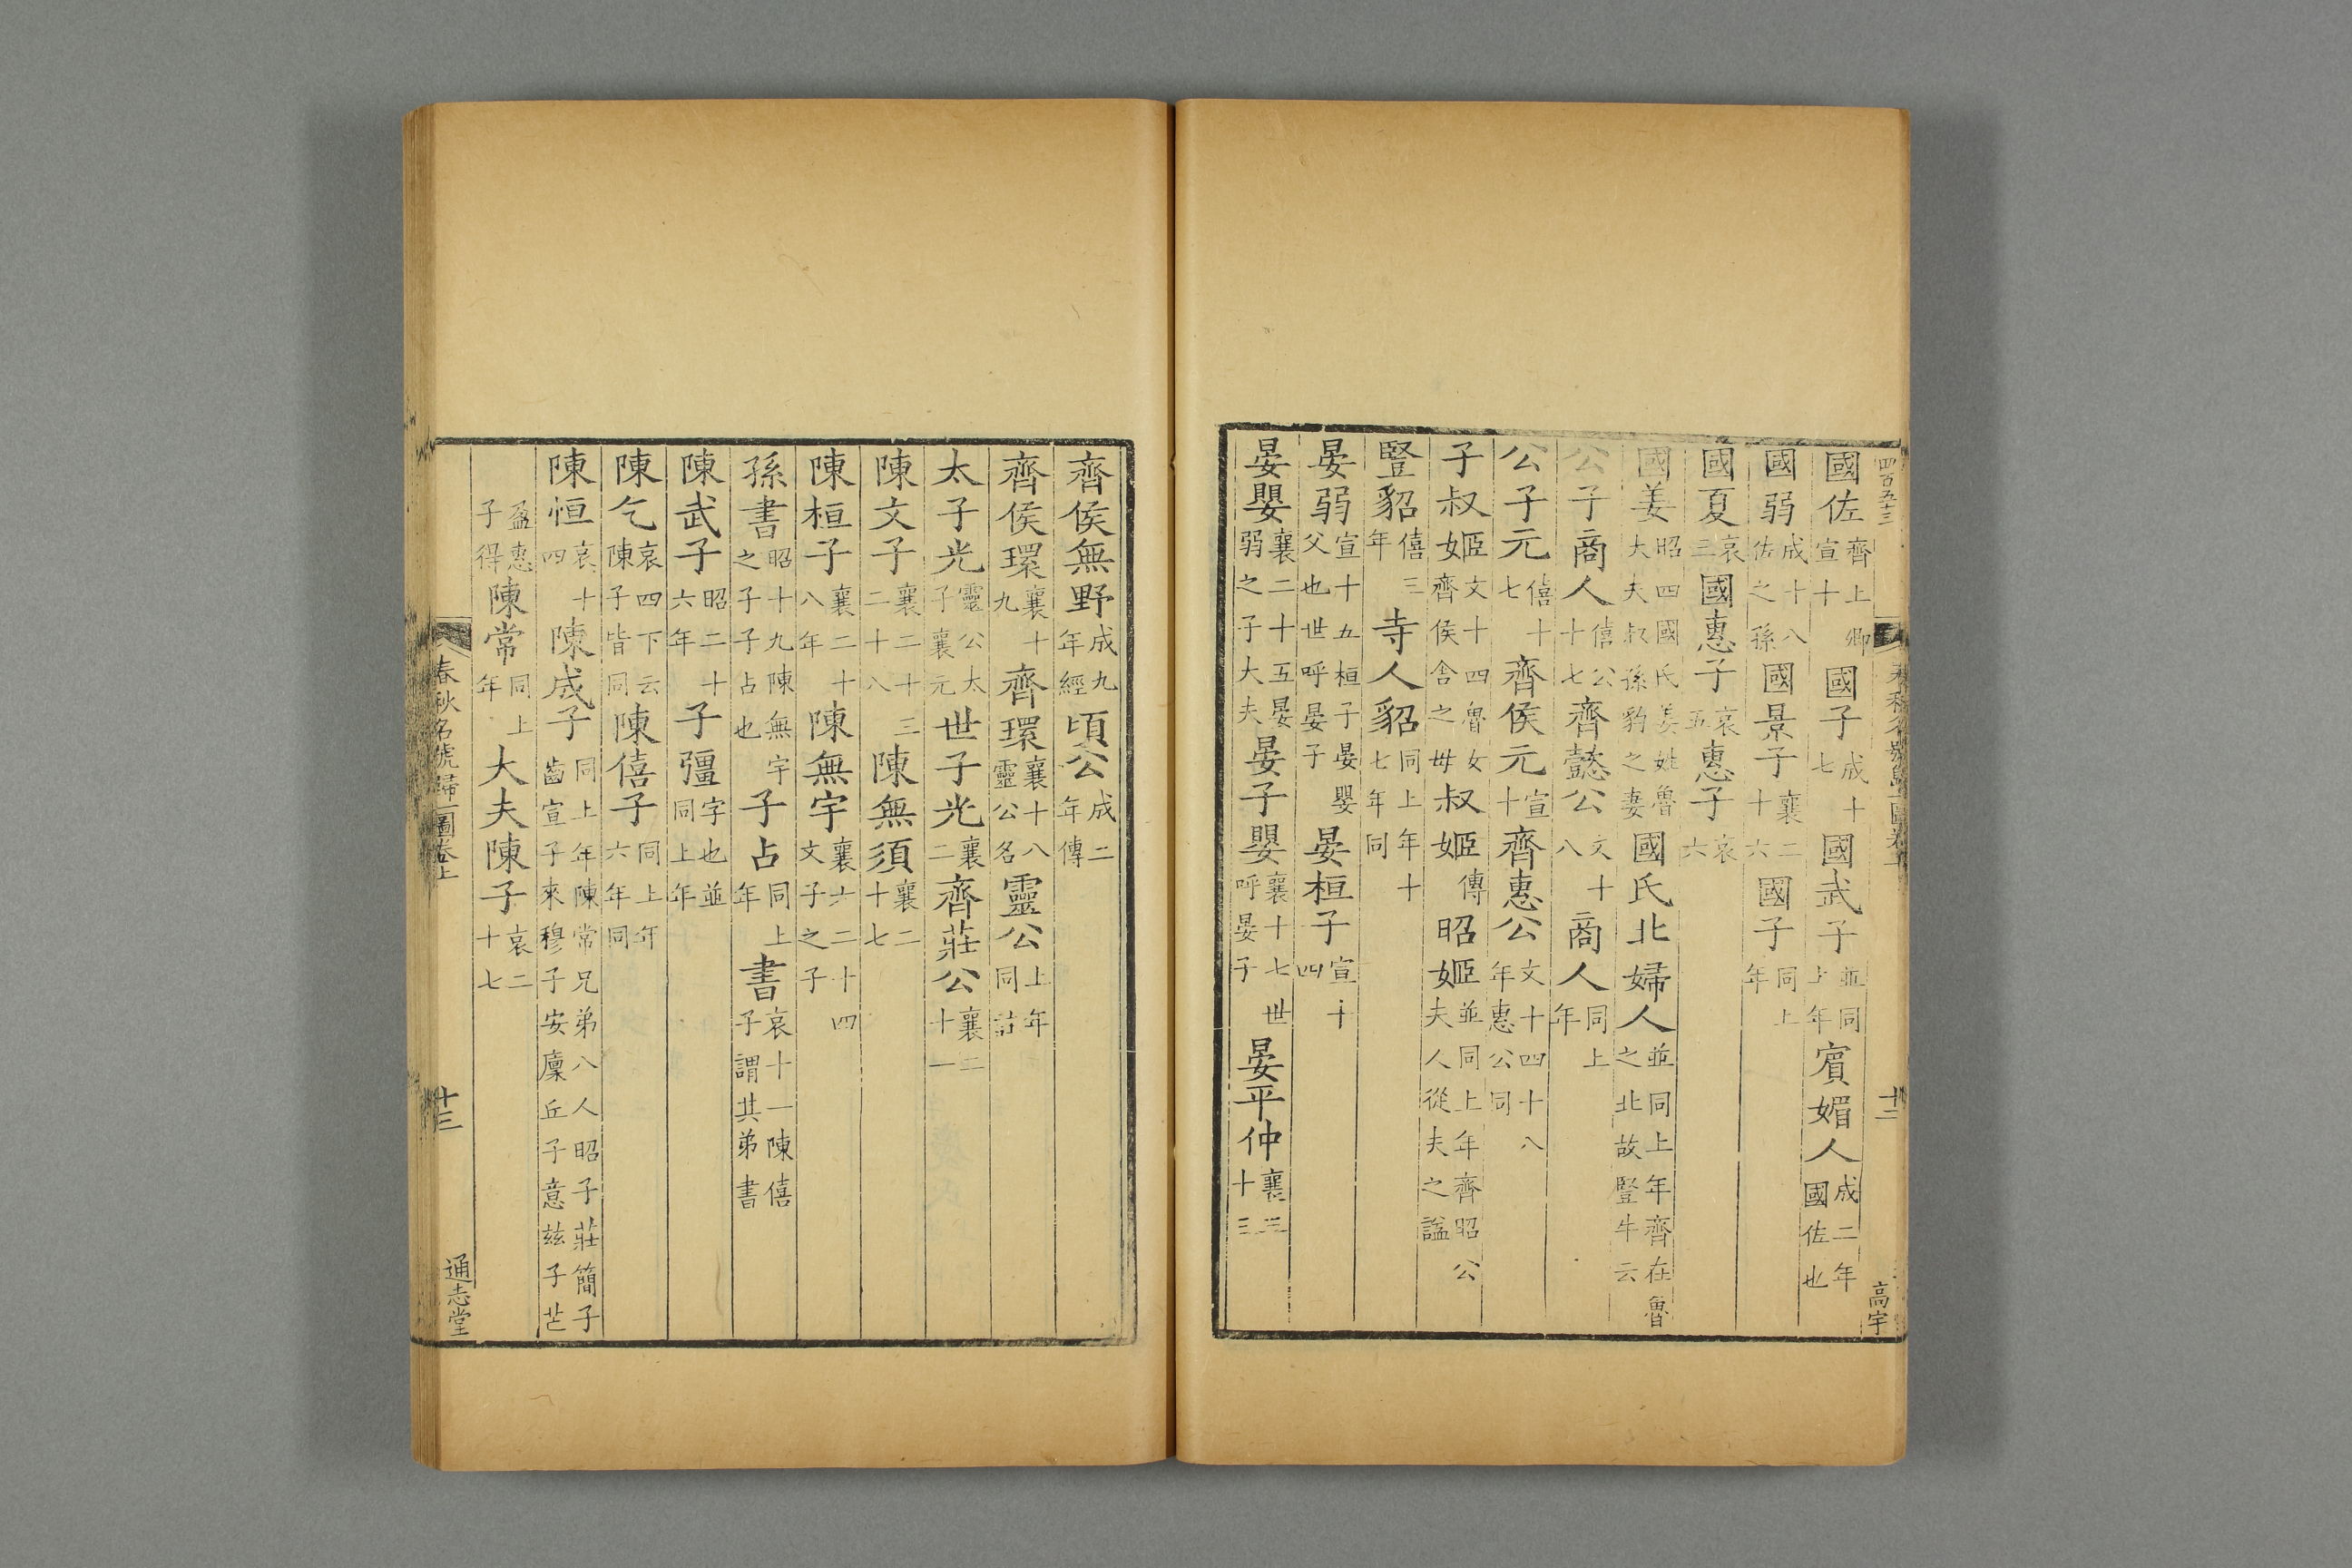 四百五十三
國佐齊上卿宣十國子成十七國武子並同上年賓媚人成二年國佐也
國弱成十八佐之孫國景子襄二十六國子同上年
國夏哀三國惠子哀五惠子哀六
國姜昭四國氏姜姓魯大夫叔孫豹之妻國氏北婦人並同上年齊在魯之北故豎牛云
公子商人僖公十七齊懿公文十八商人同上年
公子元僖十七齊侯元宣十齊惠公文十四十八年惠公同
子叔姬文十四魯女齊侯舍之母叔姬傳昭姬並同上年齊昭公夫人從夫之謚
豎貂僖三年寺人貂同上年十七年同
晏弱宣十五桓子晏嬰父也世呼晏子晏桓子宣十四
晏嬰襄二十五晏弱之子大夫晏子嬰襄十七世呼晏子晏平仲襄三十三
十二
高宇
齊侯無野成九年經頃公成二年傳
齊侯環襄十九齊環襄十八靈公名靈公上年同註
太子光靈公太子襄元世子光襄二齊莊公襄二十一
陳文子襄二十三二十八陳無須襄二十七
陳桓子襄二十八年陳無宇襄六二十四文子之子
孫書昭十九陳無宇之子子占也子占同上年書哀十一陳僖子謂其弟書
陳武子昭二十六年子彊字也並同上年
陳乞哀四下云陳子皆同陳僖子同上年六年同
陳恒哀十四陳成子同上年陳常兄弟八人昭子莊簡子齒宣子來穆子安廩丘子意茲子芒
盈惠子得陳常同上年大夫陳子哀二十七
春秋名號歸一圖卷上
十三
通志堂